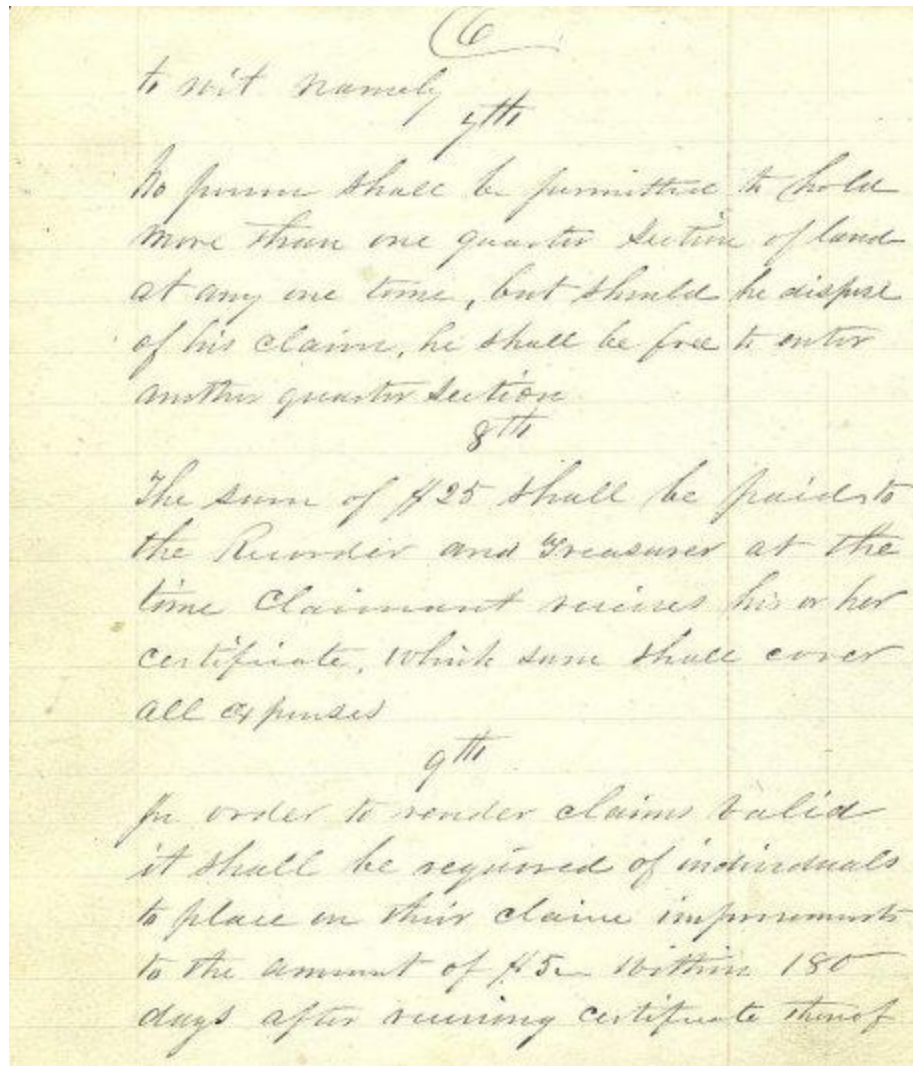 6
to wit namely
7th
No person shall be permitted to hold
more than one quarter Section of land
at any one time, but should he dispose
of his claim, he shall be free to enter
another quarter Section
8th
The sum of $25 shall be paid to
the Recorder and Treasurer at the
time Claimant receives his or her
certificate, which sum shall cover
all expenses
9th
In order to render claims valid
it shall be required of individuals
to place on their claim improvements
to the amount of $5 within 180
days after receiving certificate thereof